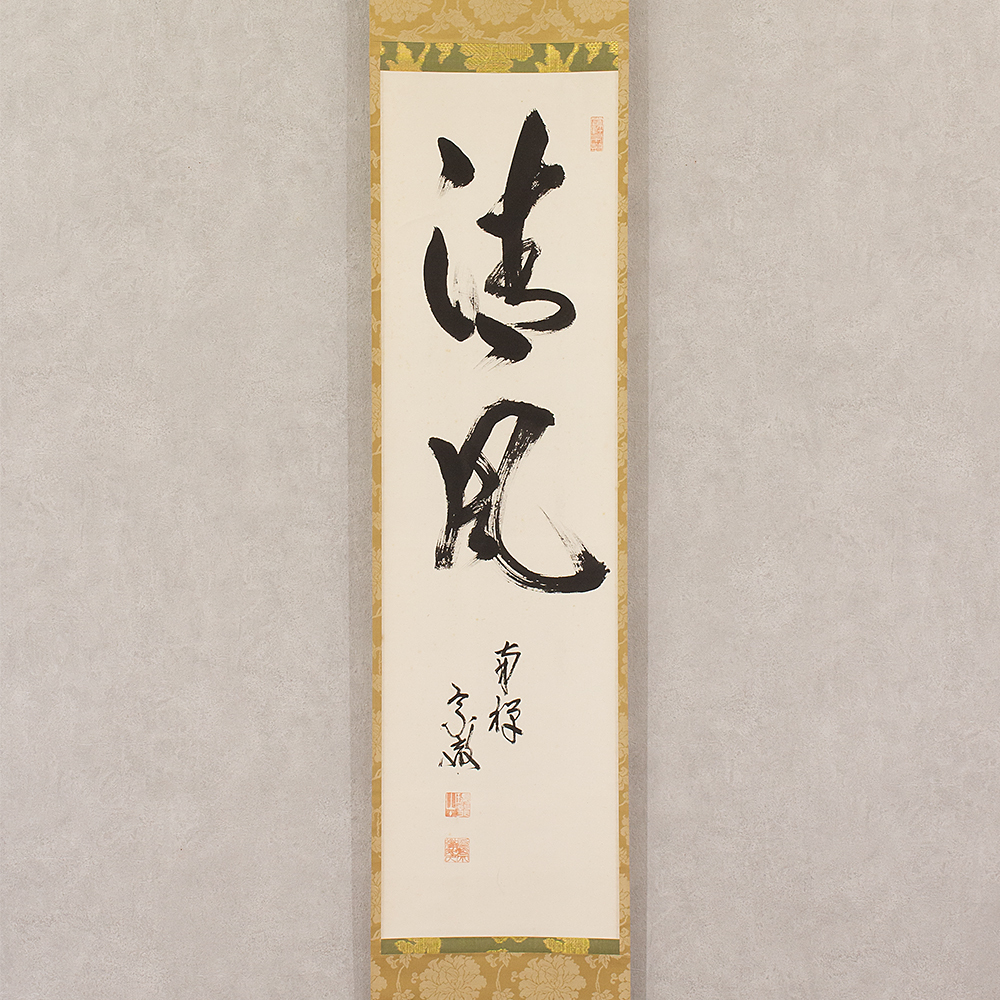 清風
南禅
宗徹